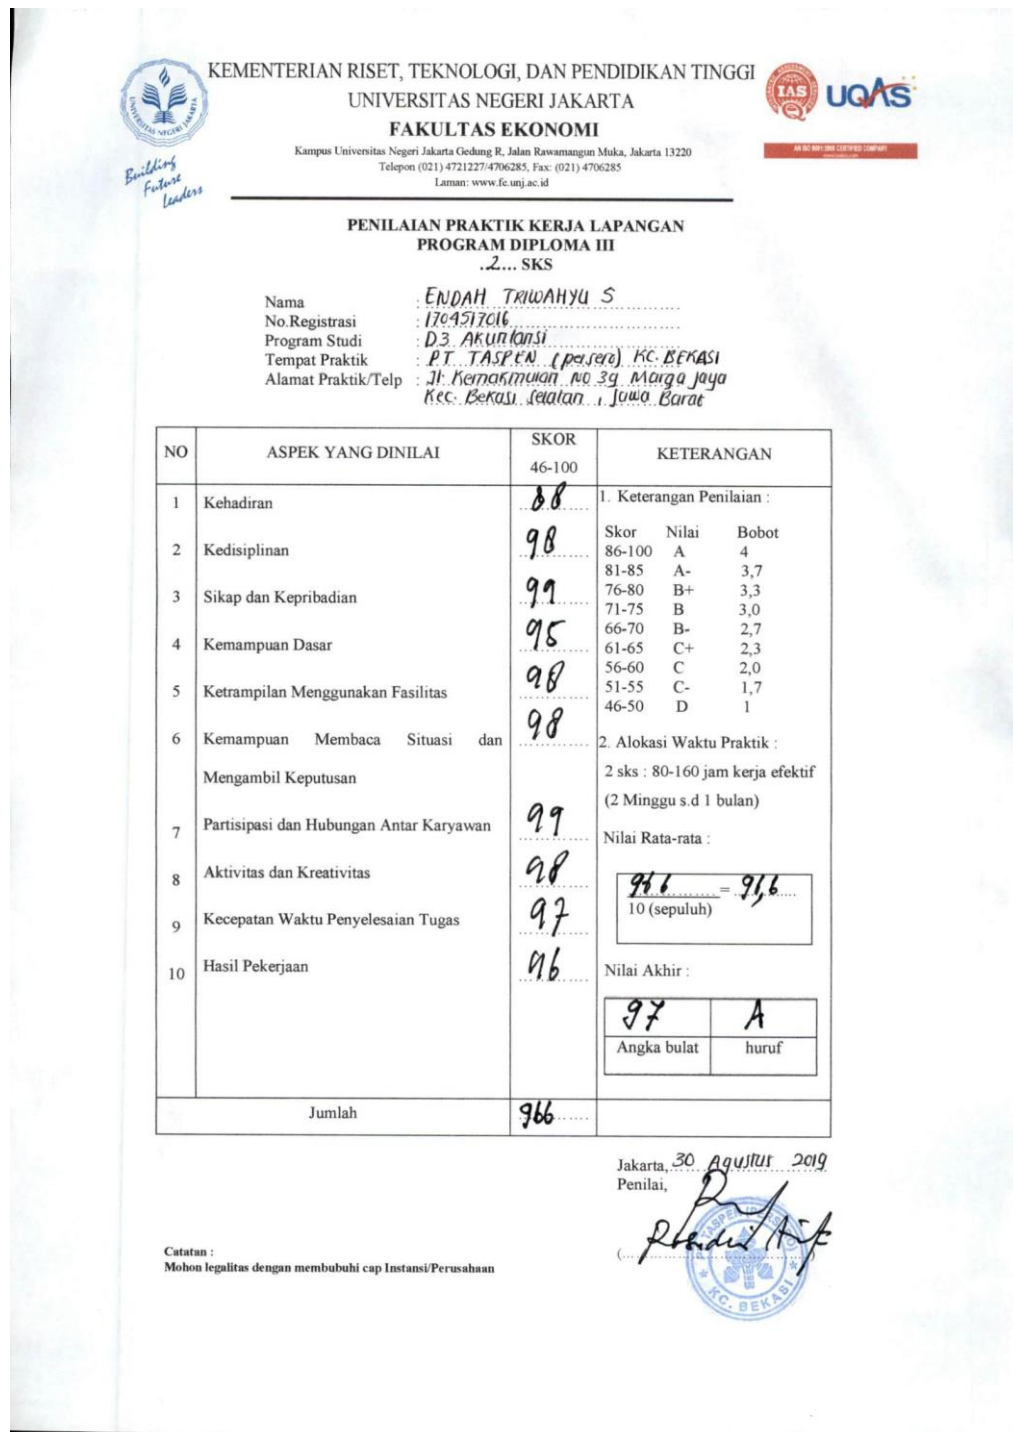 KEMENTERIAN RISET, TEKNOLOGI, DAN PENDIDIKAN TINGGI
UNIVERSITAS NEGERI JAKARTA
FAKULTAS EKONOMI
Kampus Universitas Negeri Jakarta Gedung R, Jalan Rawamangun Muka, Jakarta 13220
Telepon (021) 4721227/4706285, Fax: (021) 4706285
Laman: www.fe.unj.ac.id
UNIVERSITAS NEGERI JAKARTA
Building
Future
Leaders
IAS
UQAS
AN ISO 9001:2008 CERTIFIED COMPANY
PENILAIAN PRAKTIK KERJA LAPANGAN
PROGRAM DIPLOMA III
.2... SKS
Nama : ENDAH TRIWAHYU S
No.Registrasi : 1704517016
Program Studi : D3 Akuntansi
Tempat Praktik : PT. TASPEN (persero) KC. BEKASI
Alamat Praktik/Telp : Jl. Kemakmuran No 39 Marga Jaya
Kec. Bekasi Selatan, Jawa Barat
NO ASPEK YANG DINILAI SKOR 46-100 KETERANGAN
1 Kehadiran 88
2 Kedisiplinan 98
3 Sikap dan Kepribadian 99
4 Kemampuan Dasar 95
5 Ketrampilan Menggunakan Fasilitas 98
6 Kemampuan Membaca Situasi dan 98
Mengambil Keputusan
7 Partisipasi dan Hubungan Antar Karyawan 99
8 Aktivitas dan Kreativitas 98
9 Kecepatan Waktu Penyelesaian Tugas 97
10 Hasil Pekerjaan 96
1. Keterangan Penilaian :
Skor Nilai Bobot
86-100 A 4
81-85 A- 3,7
76-80 B+ 3,3
71-75 B 3,0
66-70 B- 2,7
61-65 C+ 2,3
56-60 C 2,0
51-55 C- 1,7
46-50 D 1
2. Alokasi Waktu Praktik :
2 sks : 80-160 jam kerja efektif
(2 Minggu s.d 1 bulan)
Nilai Rata-rata :
966 = 96,6
10 (sepuluh)
Nilai Akhir :
97 A
Angka bulat huruf
Jumlah 966
Jakarta, 30 Agustus 2019
Penilai,
PT TASPEN (PERSERO)
KC. BEKASI
Catatan :
Mohon legalitas dengan membubuhi cap Instansi/Perusahaan